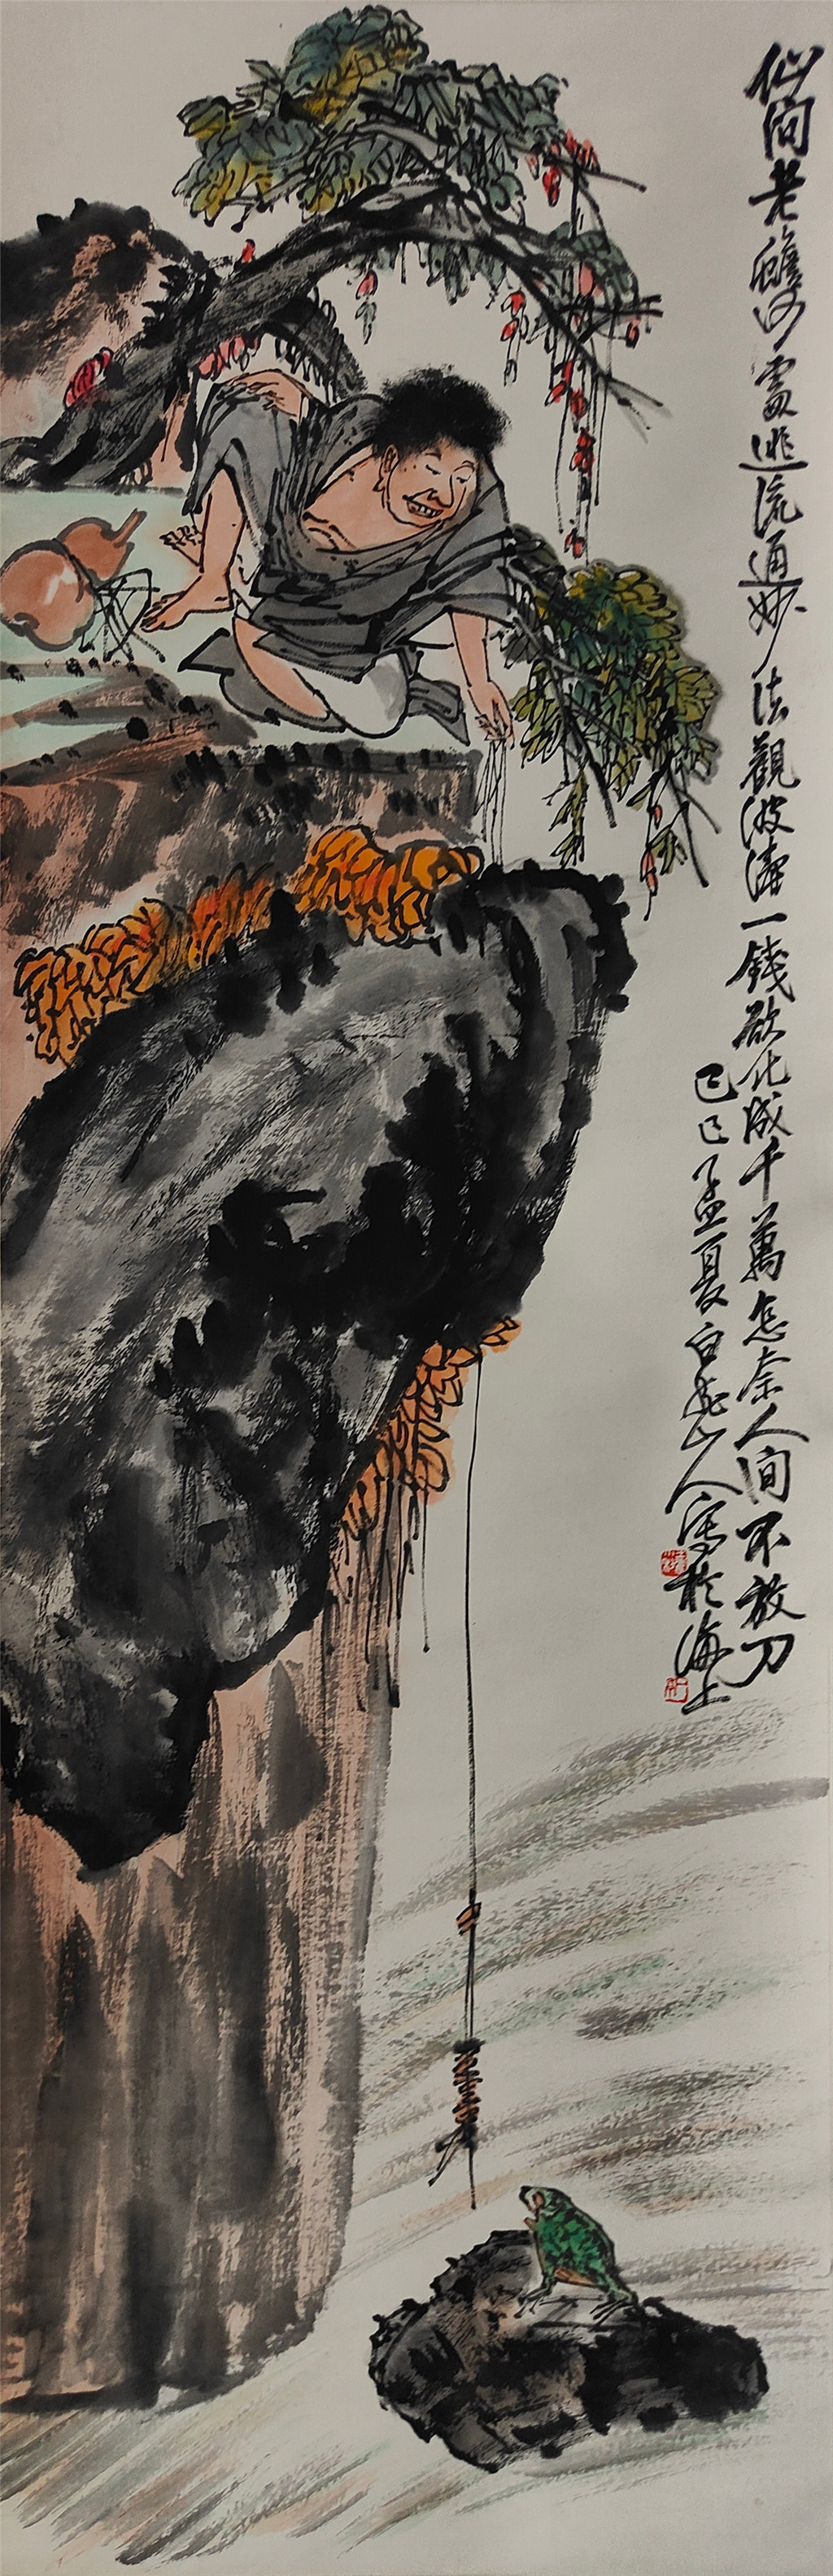 仙間老蟾
逃流通妙法觀波濤一錢欲化成千萬怎奈人間不放刀
己巳孟夏白龙山人寫於海上